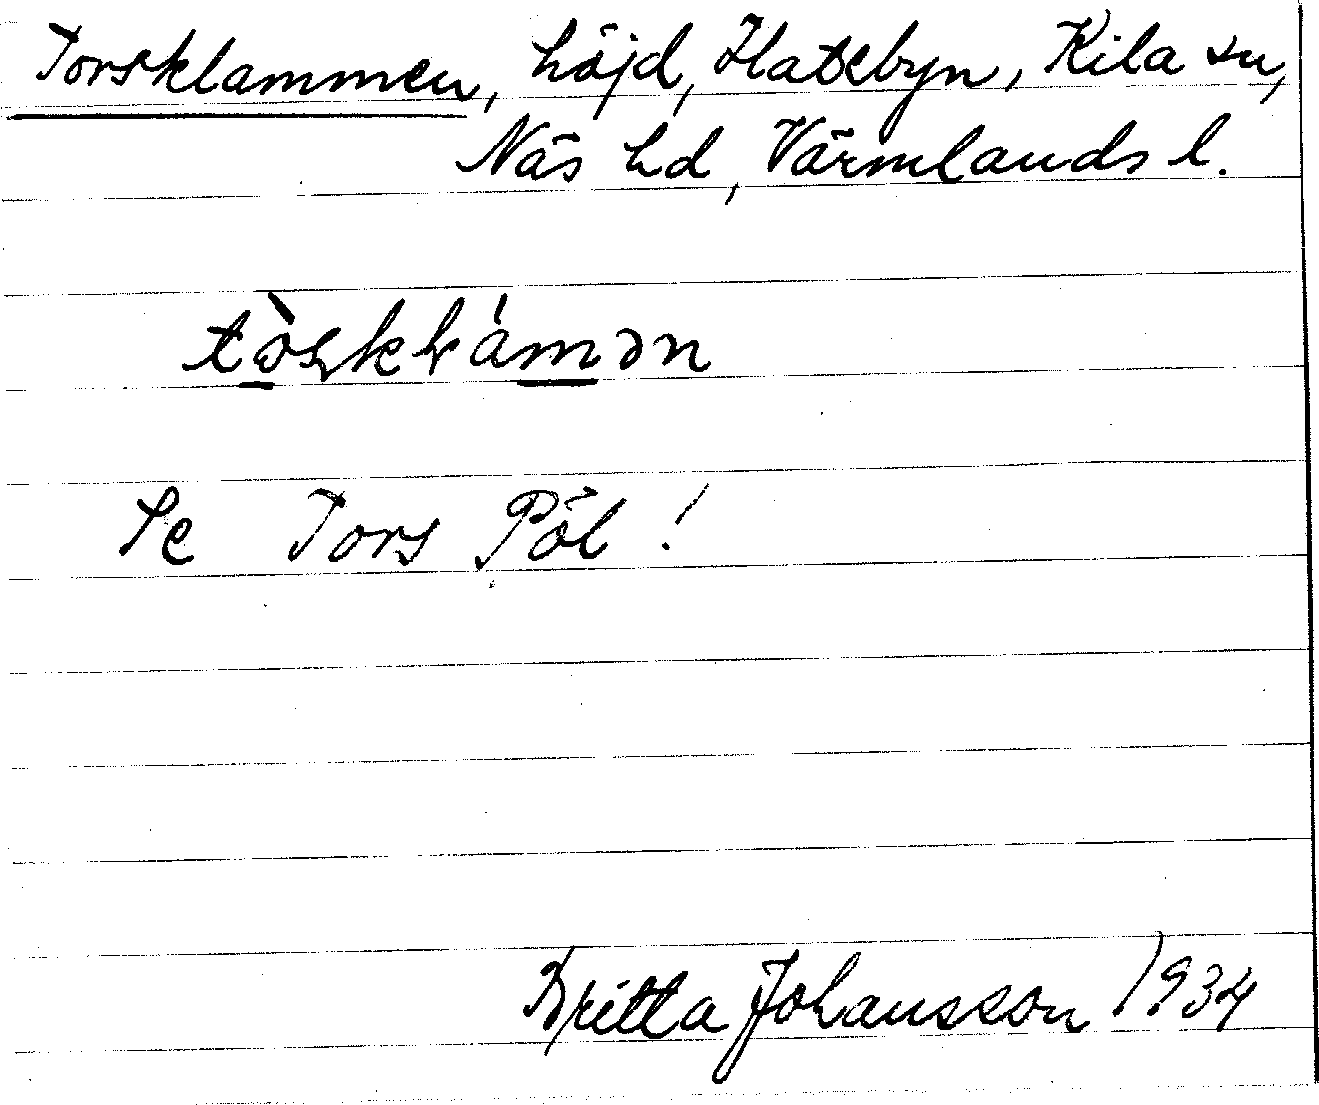 Torsklammen, höjd, Hatebyn, Kila sn,
Näs hd, Värmlands l.
Se Tors Pöl!
Britta Johansson 1934